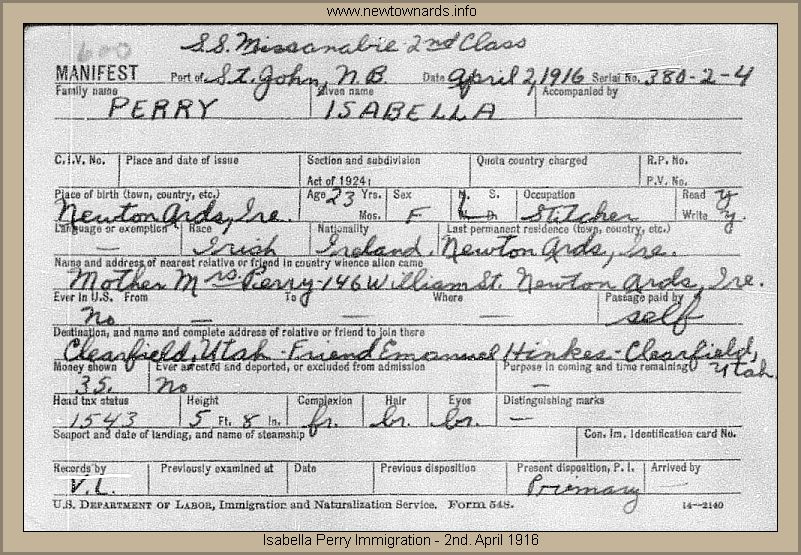 www.newtownards.info
600
S.S. Missanabie 2nd Class
MANIFEST Port of St. John, N.B. Date April 2, 1916 Serial No. 380-2-4
Family name Given name Accompanied by
PERRY ISABELLA
C.I.V. No. Place and date of issue Section and subdivision Quota country charged R.P. No.
Act of 1924: P.V. No.
Place of birth (town, country, etc.) Age 23 Yrs. Sex M. S. Occupation Read y
Newton Ards, Ire. Mos. F W. D. Stitcher Write y.
Language or exemption Race Nationality Last permanent residence (town, country, etc.)
— Irish Ireland Newton Ards, Ire.
Name and address of nearest relative or friend in country whence alien came
Mother Mrs. Perry-146 William St. Newton Ards, Ire.
Ever in U.S. From To Where Passage paid by
No — — — self
Destination, and name and complete address of relative or friend to join there
Clearfield, Utah - Friend Emanuel Hinkes - Clearfield,
Money shown Ever arrested and deported, or excluded from admission Purpose in coming and time remaining Utah
35. No —
Head tax status Height Complexion Hair Eyes Distinguishing marks
1543 5 Ft. 8 In. fr. br. br. —
Seaport and date of landing, and name of steamship Con. Im. Identification card No.
Records by Previously examined at Date Previous disposition Present disposition, P. I. Arrived by
V.L. Primary
U.S. DEPARTMENT OF LABOR, Immigration and Naturalization Service. Form 548. 14—2140
Isabella Perry Immigration - 2nd. April 1916